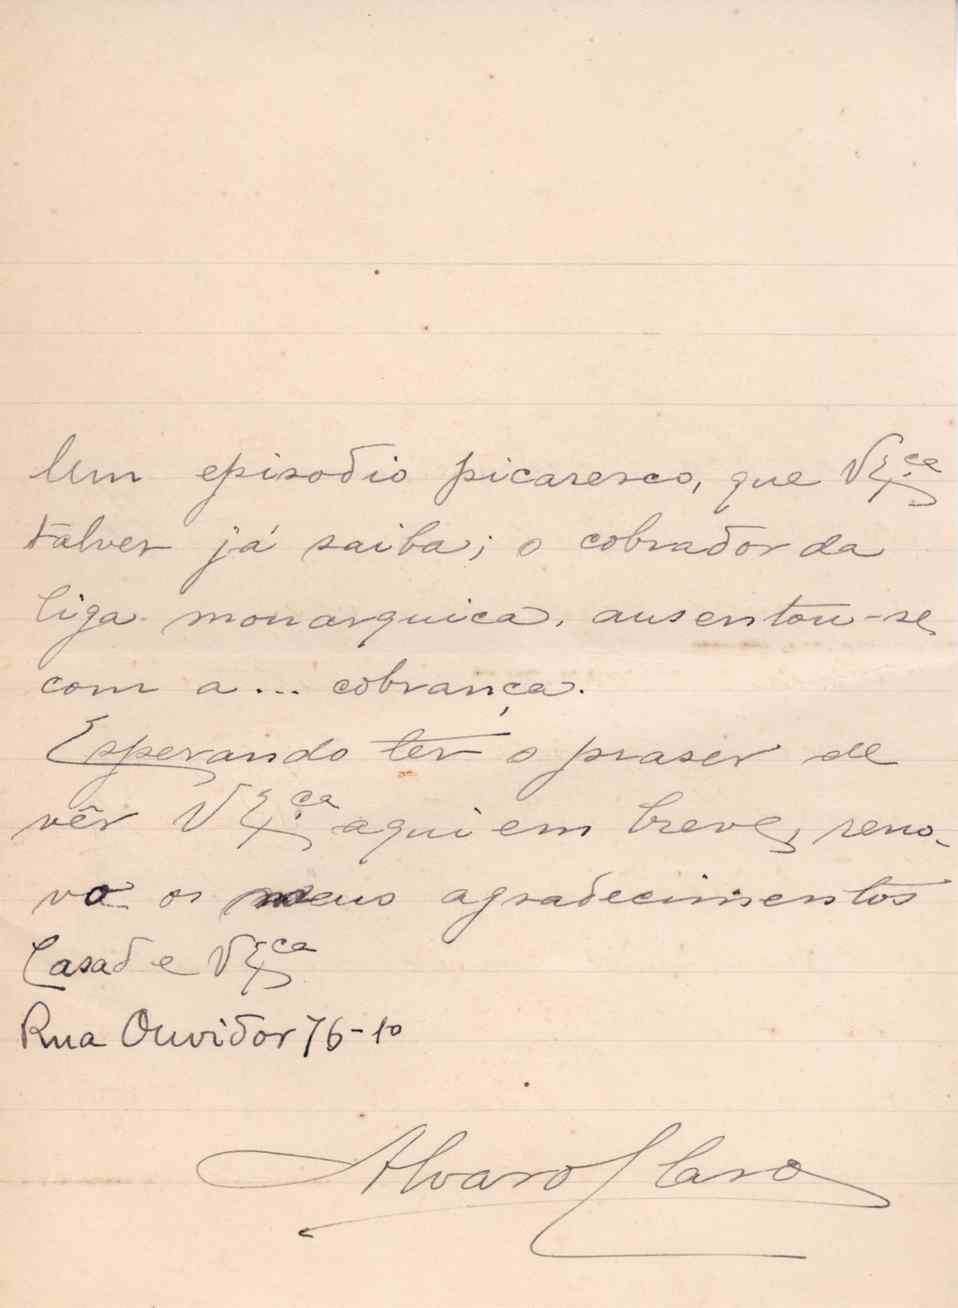 Um episodio picaresco, que V Ex.ca
talvez já saiba; o cobrador da
liga monarquica, ausentou-se
com a... cobrança.
Esperando ter o praser de
vêr V Ex.ca aqui em breve, reno-
vo os meus agradecimentos
Casa de V Ex.ca
Rua Ouvidor 76-1º
Alvaro Claro